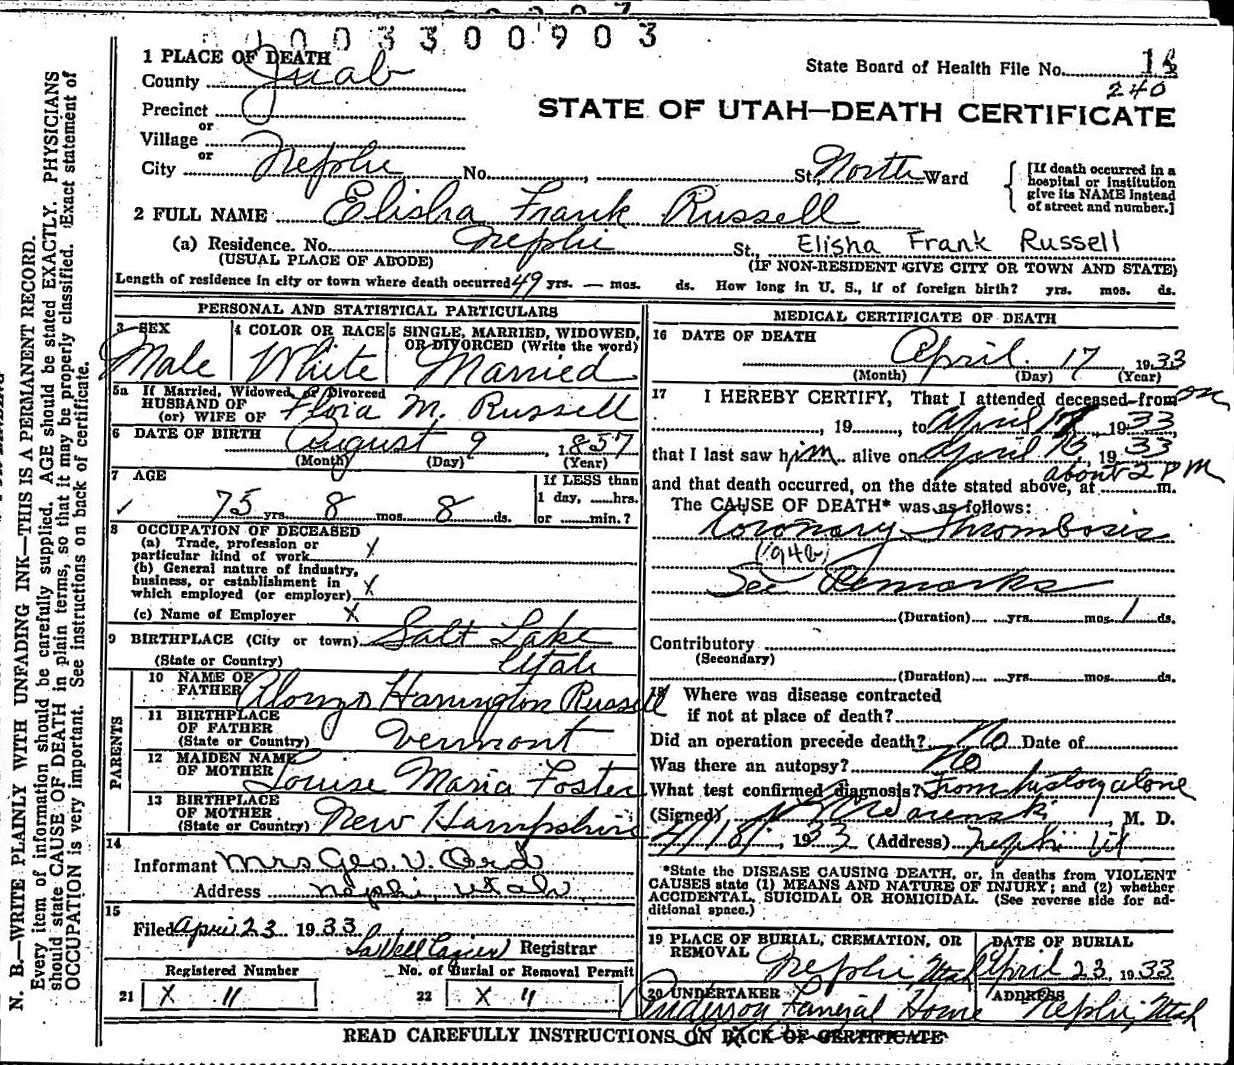 1003300903
1 PLACE OF DEATH
County Juab
State Board of Health File No.
240
Precinct
STATE OF UTAH—DEATH CERTIFICATE
or
Village
or
City Nephi No. , St., North Ward
[If death occurred in a
hospital or institution
give its NAME instead
of street and number.]
2 FULL NAME Elisha Frank Russell
(a) Residence. No. Nephi St., Elisha Frank Russell
(USUAL PLACE OF ABODE) (IF NON-RESIDENT GIVE CITY OR TOWN AND STATE)
Length of residence in city or town where death occurred 49 yrs. — mos. ds. How long in U. S., if of foreign birth? yrs. mos. ds.
PERSONAL AND STATISTICAL PARTICULARS
3 SEX
Male
4 COLOR OR RACE
White
5 SINGLE, MARRIED, WIDOWED,
OR DIVORCED (Write the word)
Married
5a If Married, Widowed, or Divorced
HUSBAND OF
(or) WIFE OF Flora M. Russell
6 DATE OF BIRTH August 9, 1857
(Month) (Day) (Year)
7 AGE
75 yrs. 8 mos. 8 ds.
If LESS than
1 day, hrs.
or min.?
8 OCCUPATION OF DECEASED
(a) Trade, profession or
particular kind of work X
(b) General nature of industry,
business, or establishment in
which employed (or employer) X
(c) Name of Employer X
9 BIRTHPLACE (City or town) Salt Lake
(State or Country) Utah
PARENTS
10 NAME OF
FATHER Alonzo Harrington Russell
11 BIRTHPLACE
OF FATHER
(State or Country) Vermont
12 MAIDEN NAME
OF MOTHER Louise Maria Foster
13 BIRTHPLACE
OF MOTHER
(State or Country) New Hampshire
14
Informant Mrs Geo. V. Ord
Address Nephi, Utah
15
Filed April 23 1933
Registrar
Registered Number
21 X "
No. of Burial or Removal Permit
22 X "
MEDICAL CERTIFICATE OF DEATH
16 DATE OF DEATH
April 17 1933
(Month) (Day) (Year)
17 I HEREBY CERTIFY, That I attended deceased from on
, 19 , to April , 1933,
that I last saw him alive on April 16, 1933
about 2 PM
and that death occurred, on the date stated above, at m.
The CAUSE OF DEATH* was as follows:
Coronary Thrombosis
(94b)
See Remarks
(Duration) yrs. mos. 1 ds.
Contributory
(Secondary)
(Duration) yrs. mos. ds.
18 Where was disease contracted
if not at place of death?
Did an operation precede death? No Date of
Was there an autopsy? No
What test confirmed diagnosis? From history alone
(Signed) , M. D.
4/18/, 1933 (Address) Nephi Ut
*State the DISEASE CAUSING DEATH, or, in deaths from VIOLENT
CAUSES state (1) MEANS AND NATURE OF INJURY; and (2) whether
ACCIDENTAL, SUICIDAL OR HOMICIDAL. (See reverse side for ad-
ditional space.)
19 PLACE OF BURIAL, CREMATION, OR
REMOVAL Nephi, Utah
DATE OF BURIAL
April 23, 1933
20 UNDERTAKER
Anderson Funeral Home
ADDRESS
Nephi, Utah
READ CAREFULLY INSTRUCTIONS ON BACK OF CERTIFICATE
N. B.—WRITE PLAINLY WITH UNFADING INK—THIS IS A PERMANENT RECORD.
Every item of information should be carefully supplied. AGE should be stated EXACTLY. PHYSICIANS
should state CAUSE OF DEATH in plain terms, so that it may be properly classified. Exact statement of
OCCUPATION is very important. See instructions on back of certificate.